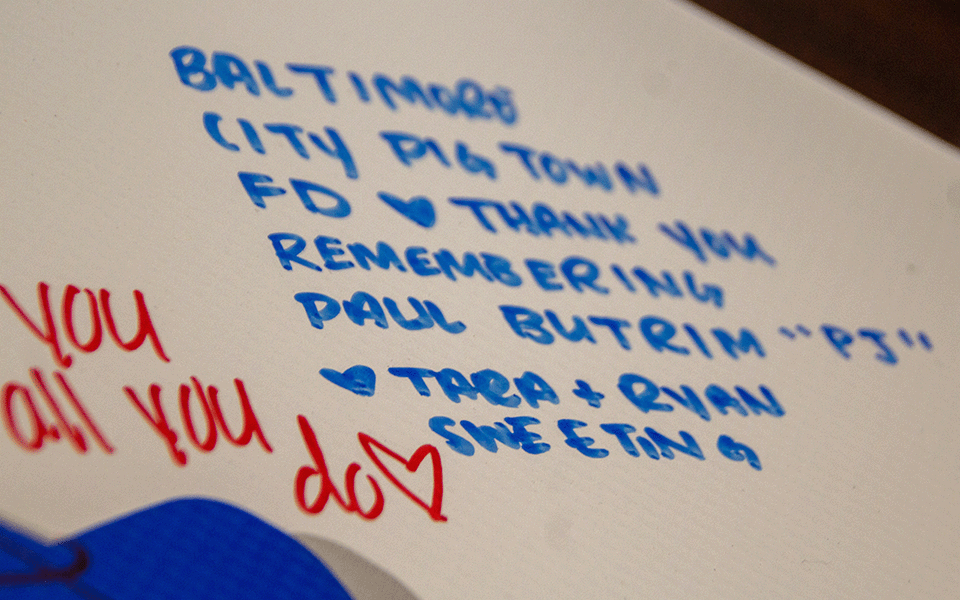 BALTIMORE
CITY PIGTOWN
FD ♥ THANK YOU
REMEMBERING
PAUL BUTRIM "PJ"
♥ TARA + RYAN
SWEETING
you
all you
do ♡